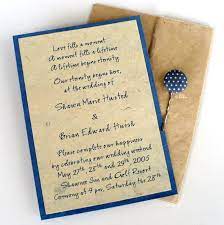 Love fills a moment
A moment fills a lifetime
A lifetime begins eternity
Our eternity begins here,
at the wedding of
Shawna Marie Husted
&
Brian Edward Huish
Please complete our happiness
by celebrating our wedding weekend
May 27th, 28th and 29th, 2005
Shawnee Inn and Golf Resort
Ceremony at 4 pm, Saturday the 28th